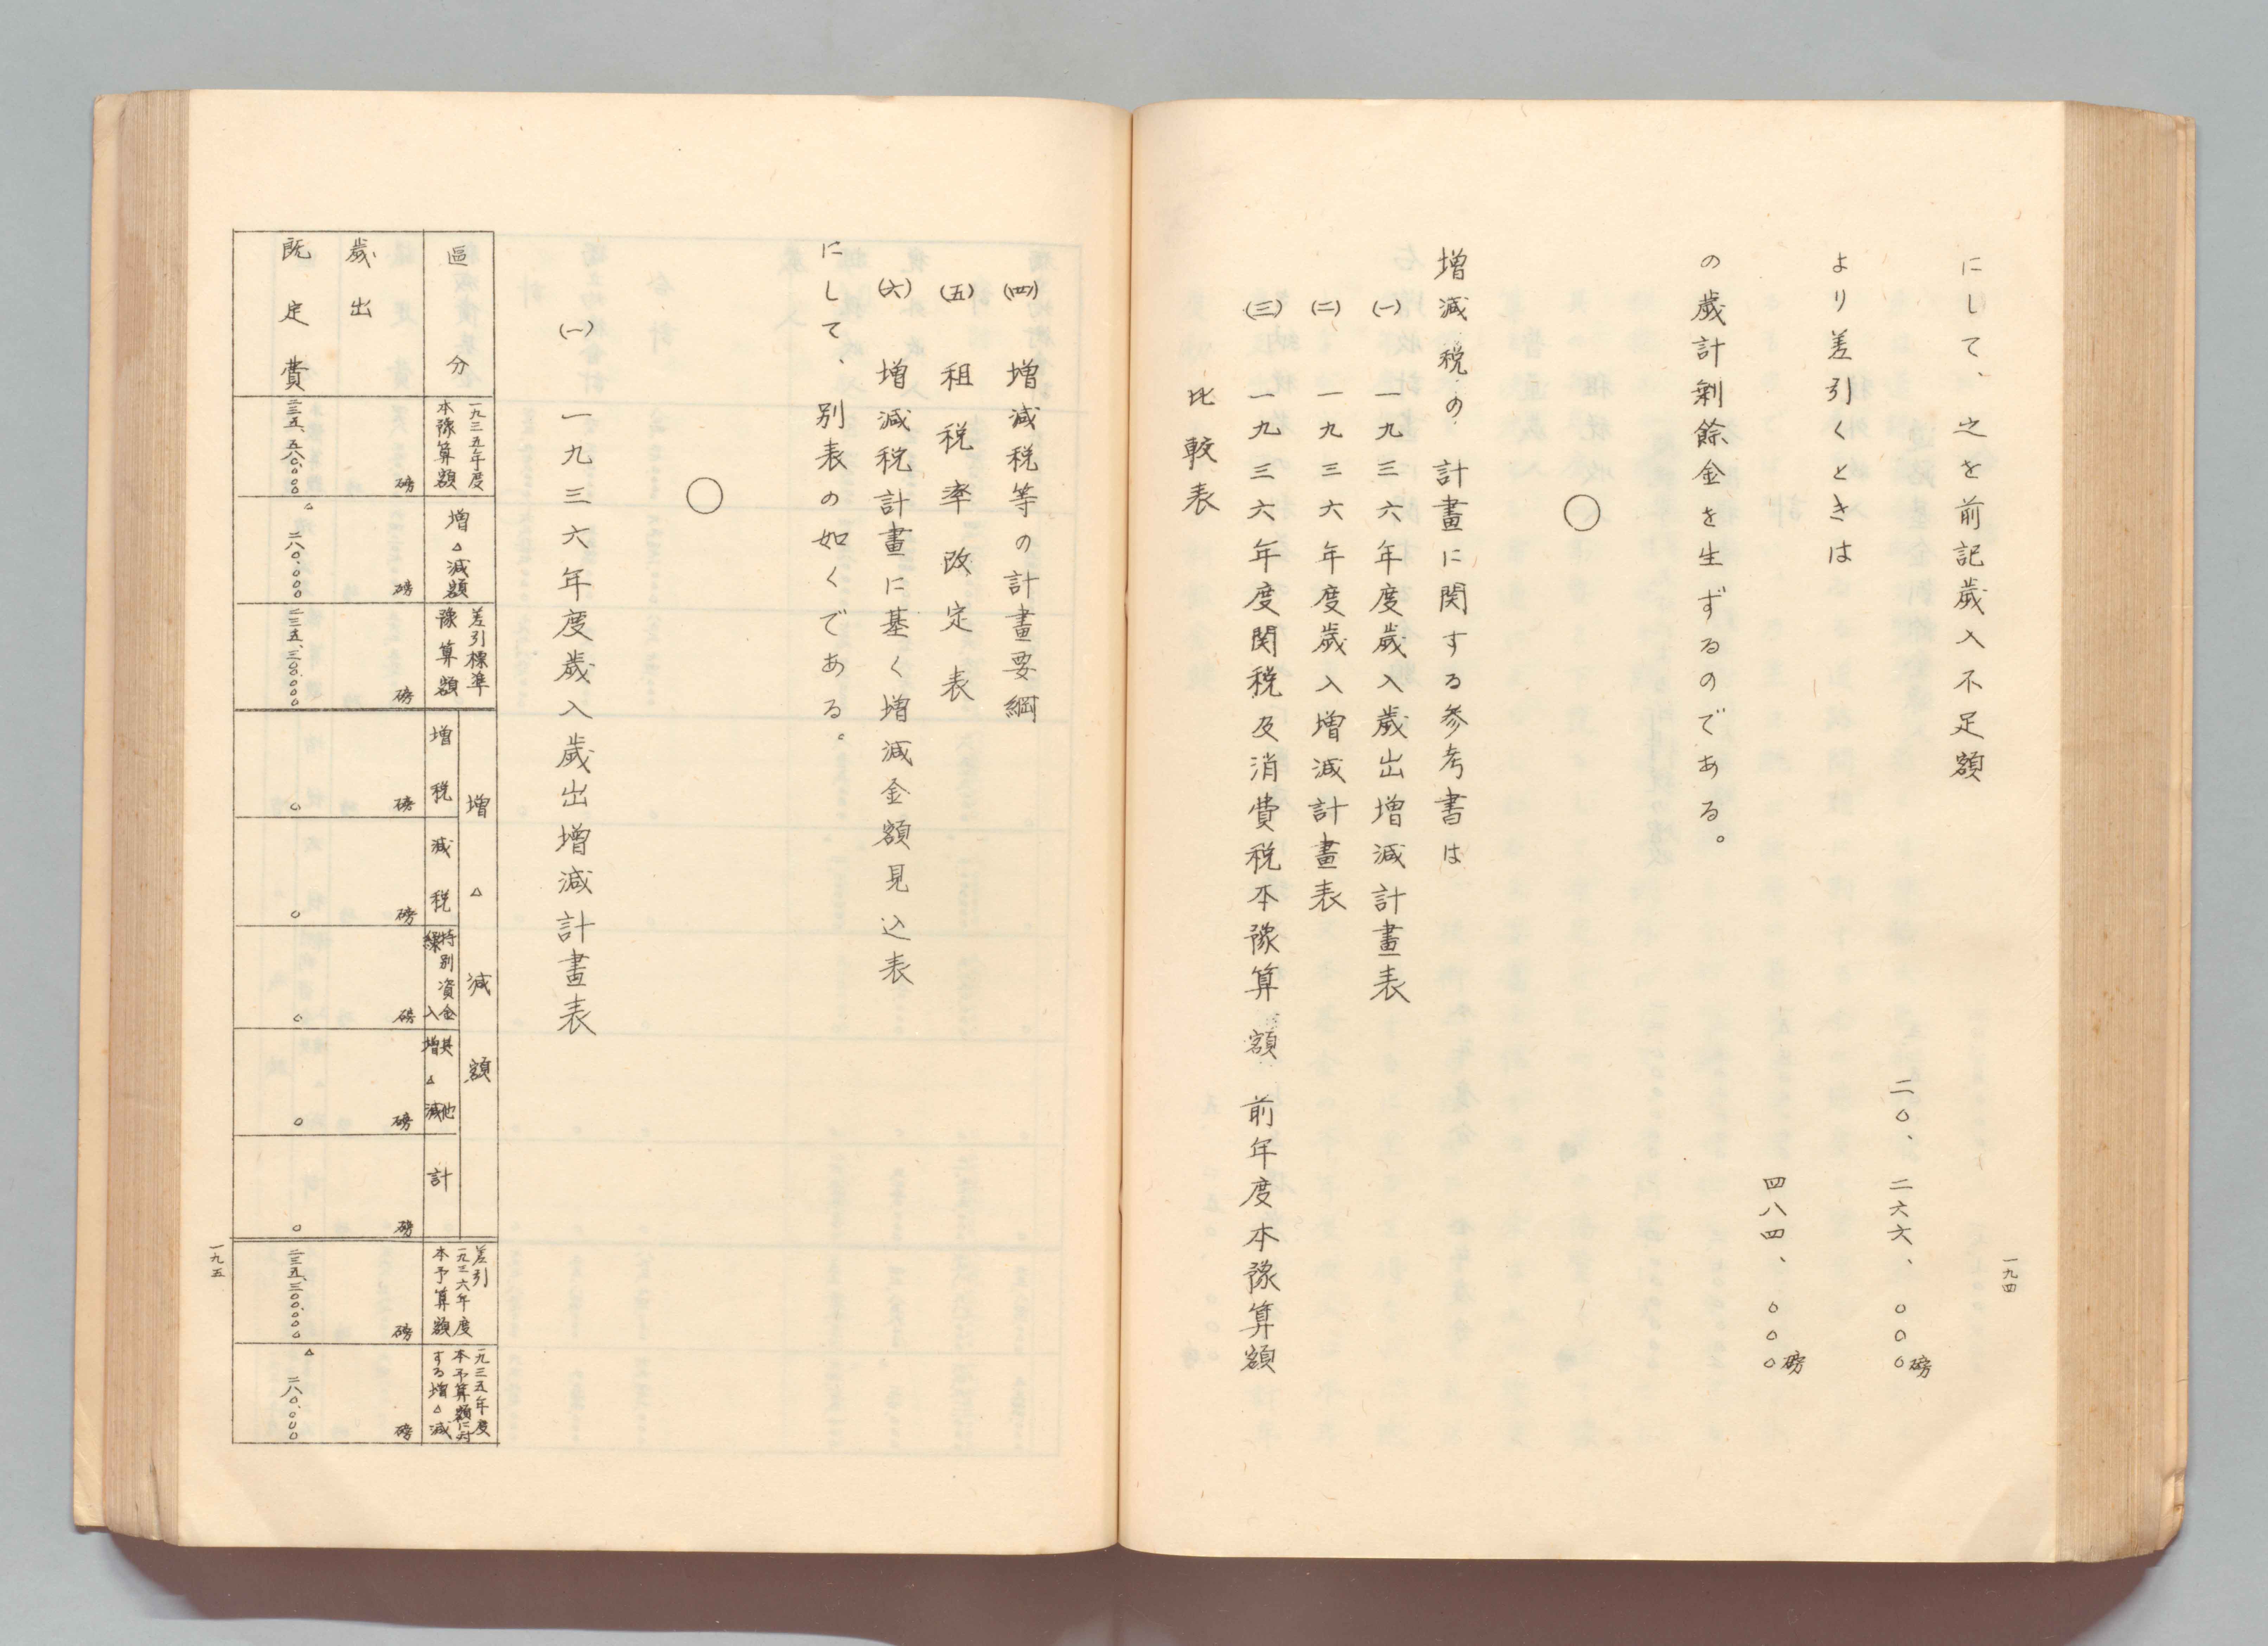 一九四
にして、之を前記歲入不足額
二〇、二六六、〇〇〇磅
より差引くときは
四八四、〇〇〇磅
の歲計剰餘金を生ずるのである。
〇
増減税の計畫に関する参考書は
(一) 一九三六年度歲入歲出増減計畫表
(二) 一九三六年度歲入増減計畫表
(三) 一九三六年度関税及消費税本豫算額前年度本豫算額
比較表
(四) 増減税等の計畫要綱
(五) 租税率改定表
(六) 増減税計畫に基く増減金額見込表
にして、別表の如くである。
〇
(一) 一九三六年度歲入歲出増減計畫表
區分
一九三五年度
本豫算額
増△減額
差引標準
豫算額
増△減額
増税
減税
特別資金
繰入
其他
増△減
計
差引
一九三六年度
本予算額
一九三五年度
本予算額に対
する増△減
歲出
磅
磅
磅
磅
磅
磅
磅
磅
磅
磅
既定費
△二八〇.〇〇〇
〇
〇
〇
〇
〇
二三五、三〇〇.〇〇〇
△二八〇.〇〇〇
一九五